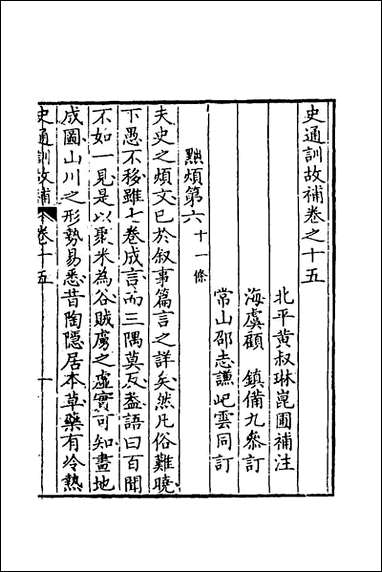 史通訓故補卷之十五
北平黃叔琳崑圃補注
海虞顧 鎮備九叅訂
常山邵志謙屺雲同訂
點煩第六十一條
夫史之煩文已於叙事篇言之詳矣然凡俗難曉
下愚不移雖七卷成言而三隅莫反葢語曰百聞
不如一見是以聚米為谷賊虜之虛實可知畫地
成圖山川之形勢易悉昔陶隱居本草藥有冷熱
史通訓故補 卷十五 一